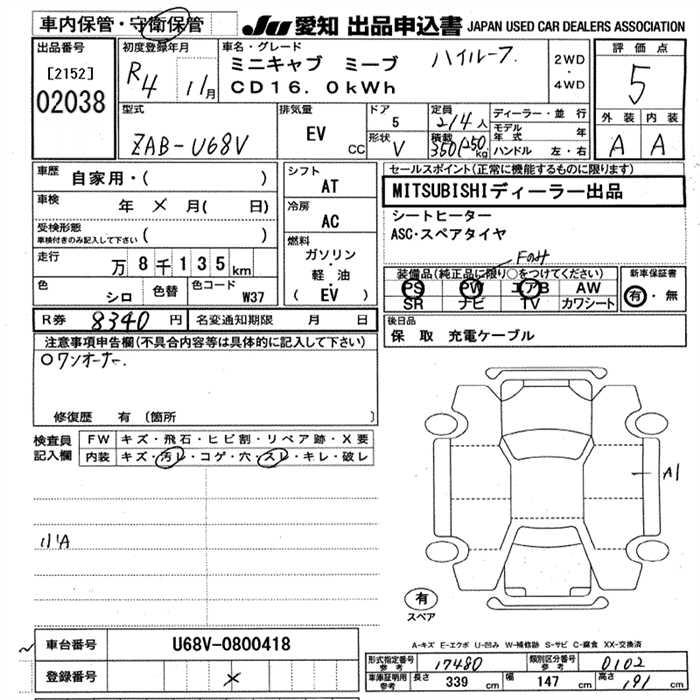 車内保管・守衛保管
JU 愛知 出品申込書 JAPAN USED CAR DEALERS ASSOCIATION
出品番号
[2152]
02038
初度登録年月
R4 11月
車名・グレード
ミニキャブ ミーブ ハイルーフ
CD16.0kWh
2WD
・
4WD
評価点
5
外装 内装
A A
型式
ZAB-U68V
排気量
EV
CC
ドア
5
形状
V
定員
2/4人
積載
350/250kg
ディーラー・並行
モデル年式 年
ハンドル 左・右
車歴
自家用・( )
車検
年 × 月( 日)
受検形態
車検付きのみ記入して下さい ( )
走行
万8千135km
色
シロ
色替
色コード
W37
シフト
AT
冷房
AC
燃料
ガソリン
・
軽油
・
( EV )
セールスポイント(正常に機能するものに限ります)
MITSUBISHIディーラー出品
シートヒーター
ASC・スペアタイヤ
Fのみ
装備品(純正品に限り○をつけてください)
PS PW エアB AW
SR ナビ TV カワシート
新車保証書
有・無
R券 8340円 名変通知期限 月 日
後日品
保 取 充電ケーブル
注意事項申告欄(不具合内容等は具体的に記入して下さい)
○ワンオーナー.
修復歴 有 〔箇所 〕
検査員記入欄
FW キズ・飛石・ヒビ割・リペア跡・X要
内装 キズ・汚レ・コゲ・穴・スレ・キレ・破レ
小A
A1
有
スペア
A-キズ E-エクボ U-凹み W-補修跡 S-サビ C-腐食 XX-交換済
車台番号 U68V-0800418
登録番号 ×
形式指定番号 参考 17480 類別区分番号 参考 0102
車庫証明用 参考 長さ 339 cm 幅 147 cm 高さ 191 cm